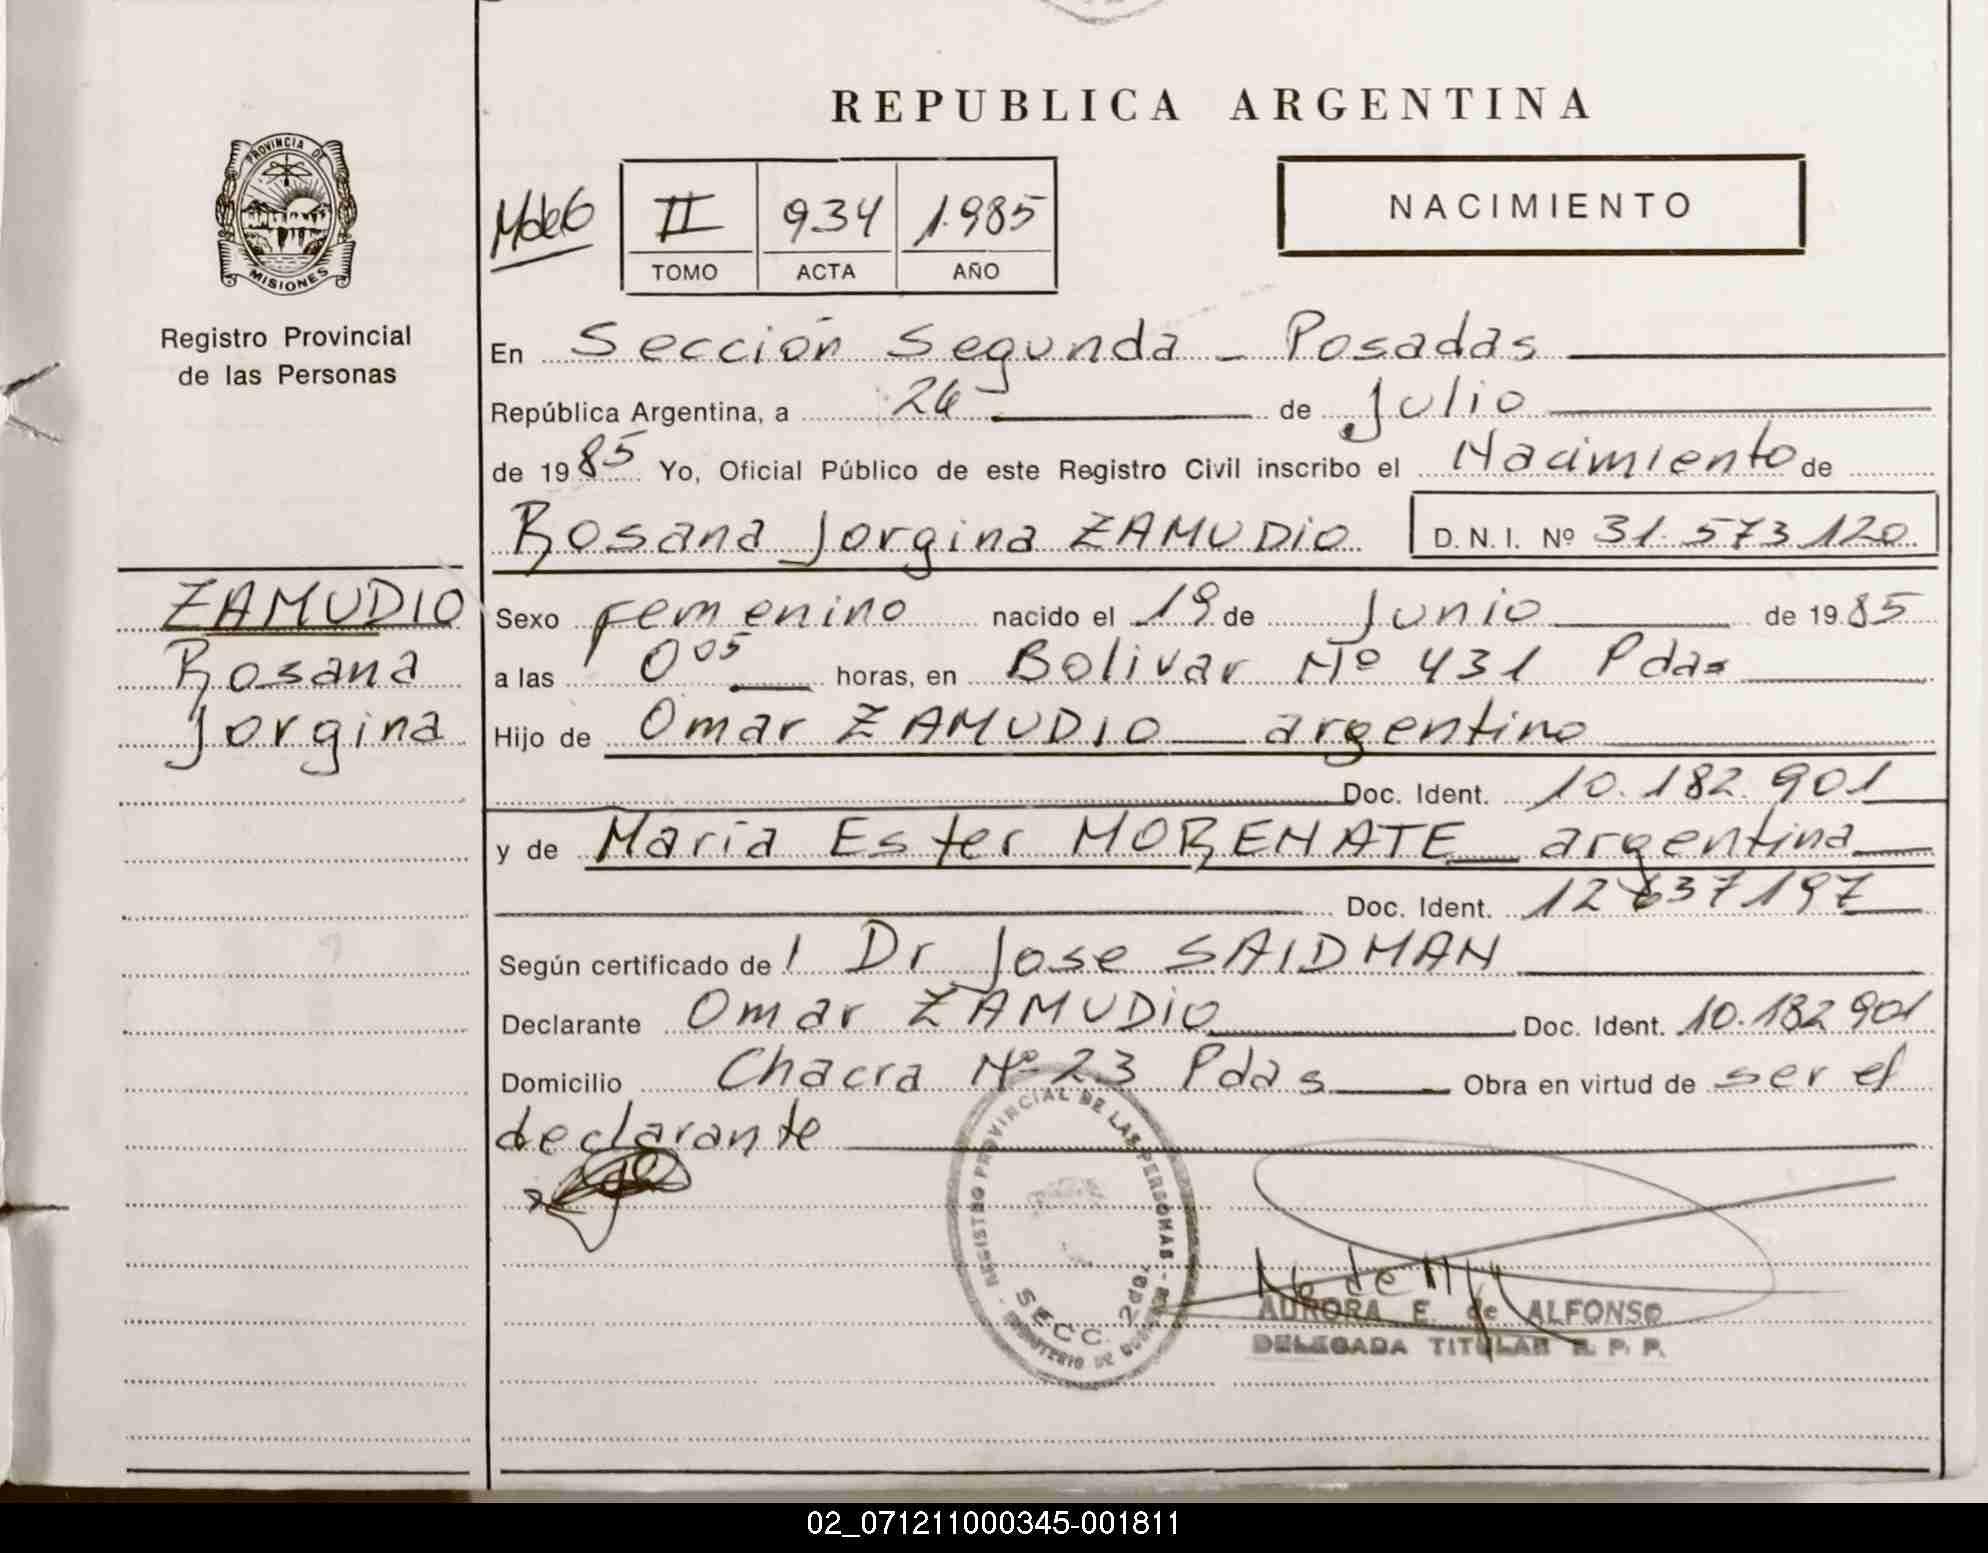 REPUBLICA ARGENTINA
PROVINCIA DE MISIONES
Registro Provincial
de las Personas
II 934 1.985
TOMO ACTA AÑO
NACIMIENTO
En Sección Segunda - Posadas
República Argentina, a 26 de Julio
de 1985 Yo, Oficial Público de este Registro Civil inscribo el Nacimiento de
Rosana Jorgina ZAMUDIO D.N.I. Nº 31.573.120
ZAMUDIO
Rosana
Jorgina
Sexo femenino nacido el 19 de Junio de 1985
a las 0 05 horas, en Bolivar Nº 431 Pdas
Hijo de Omar ZAMUDIO argentino
Doc. Ident. 10.182.901
y de María Ester MORENATE argentina
Doc. Ident. 12637197
Según certificado de Dr Jose SAIDMAN
Declarante Omar ZAMUDIO Doc. Ident. 10.182 901
Domicilio Chacra Nº 23 Pdas Obra en virtud de ser el
declarante
REGISTRO PROVINCIAL DE LAS PERSONAS
SECC. 2da.
AURORA E. de ALFONSO
DELEGADA TITULAR R. P. P.
02_071211000345-001811